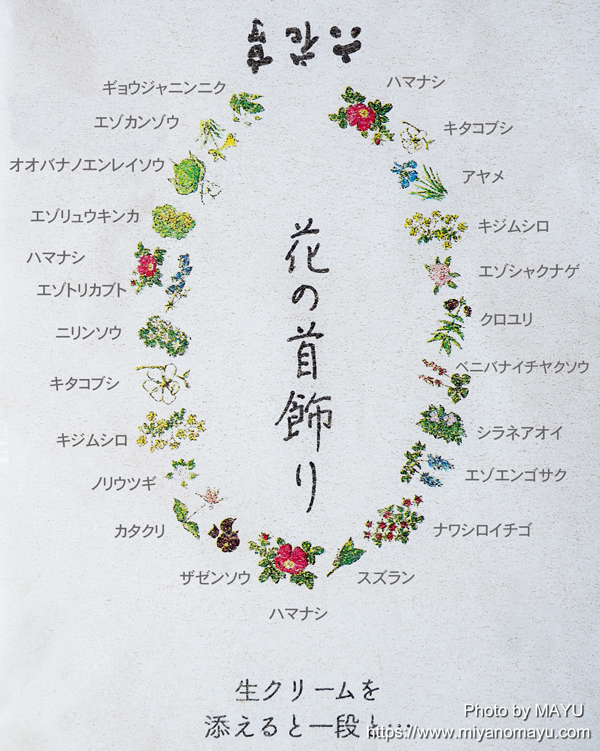 六花亭
ギョウジャニンニク
エゾカンゾウ
オオバナノエンレイソウ
エゾリュウキンカ
ハマナシ
エゾトリカブト
ニリンソウ
キタコブシ
キジムシロ
ノリウツギ
カタクリ
ザゼンソウ
ハマナシ
花の首飾り
ハマナシ
キタコブシ
アヤメ
キジムシロ
エゾシャクナゲ
クロユリ
ベニバナイチヤクソウ
シラネアオイ
エゾエンゴサク
ナワシロイチゴ
スズラン
生クリームを
添えると一段と…
Photo by MAYU
https://www.miyanomayu.com